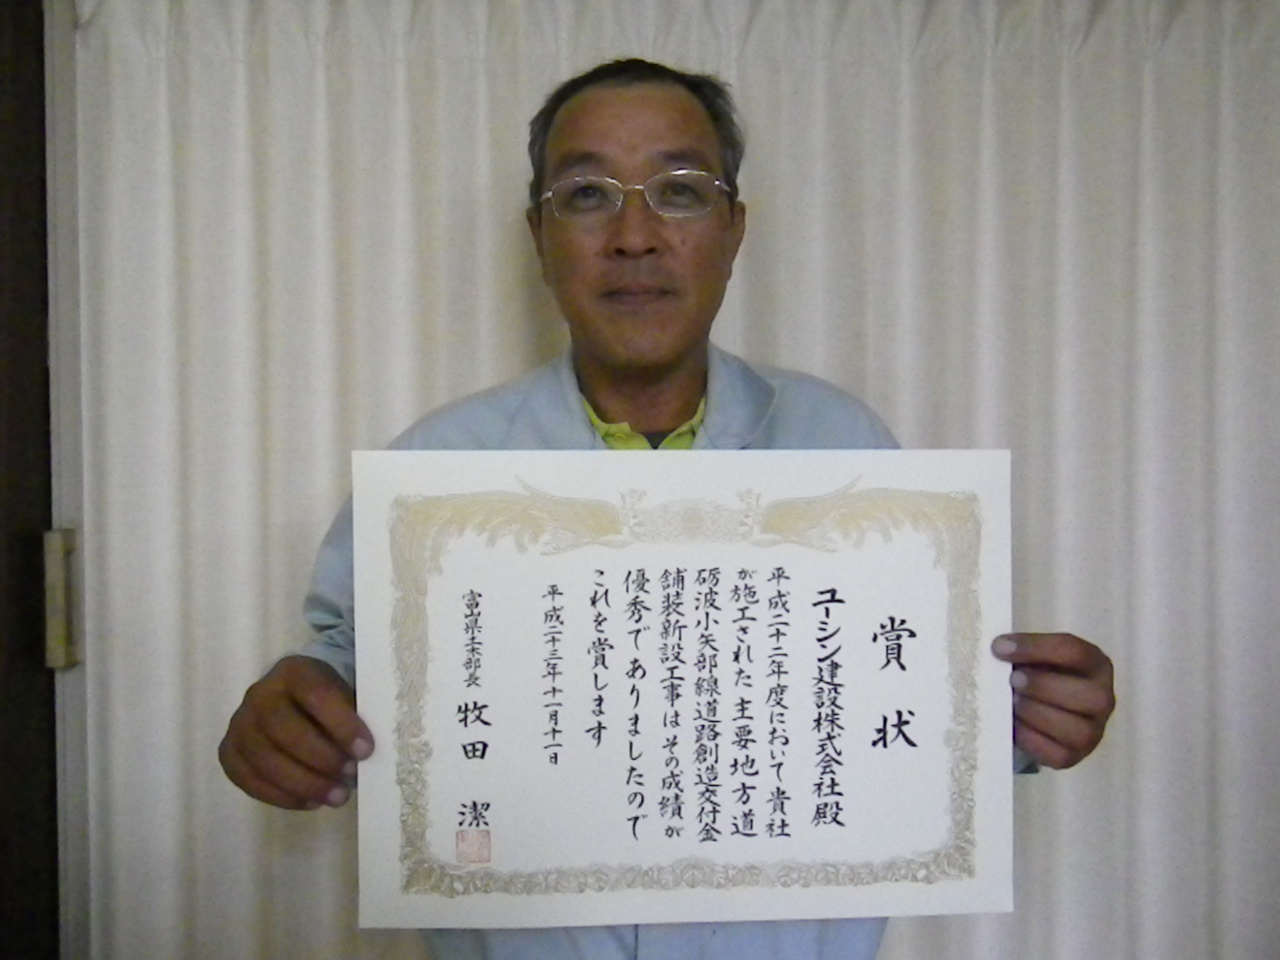 賞状
ユーシン建設株式会社殿
平成二十二年度において貴社
が施工された主要地方道
砺波小矢部線道路創造交付金
舗装新設工事はその成績が
優秀でありましたので
これを賞します
平成二十三年十一月十一日
富山県土木部長 牧田 潔